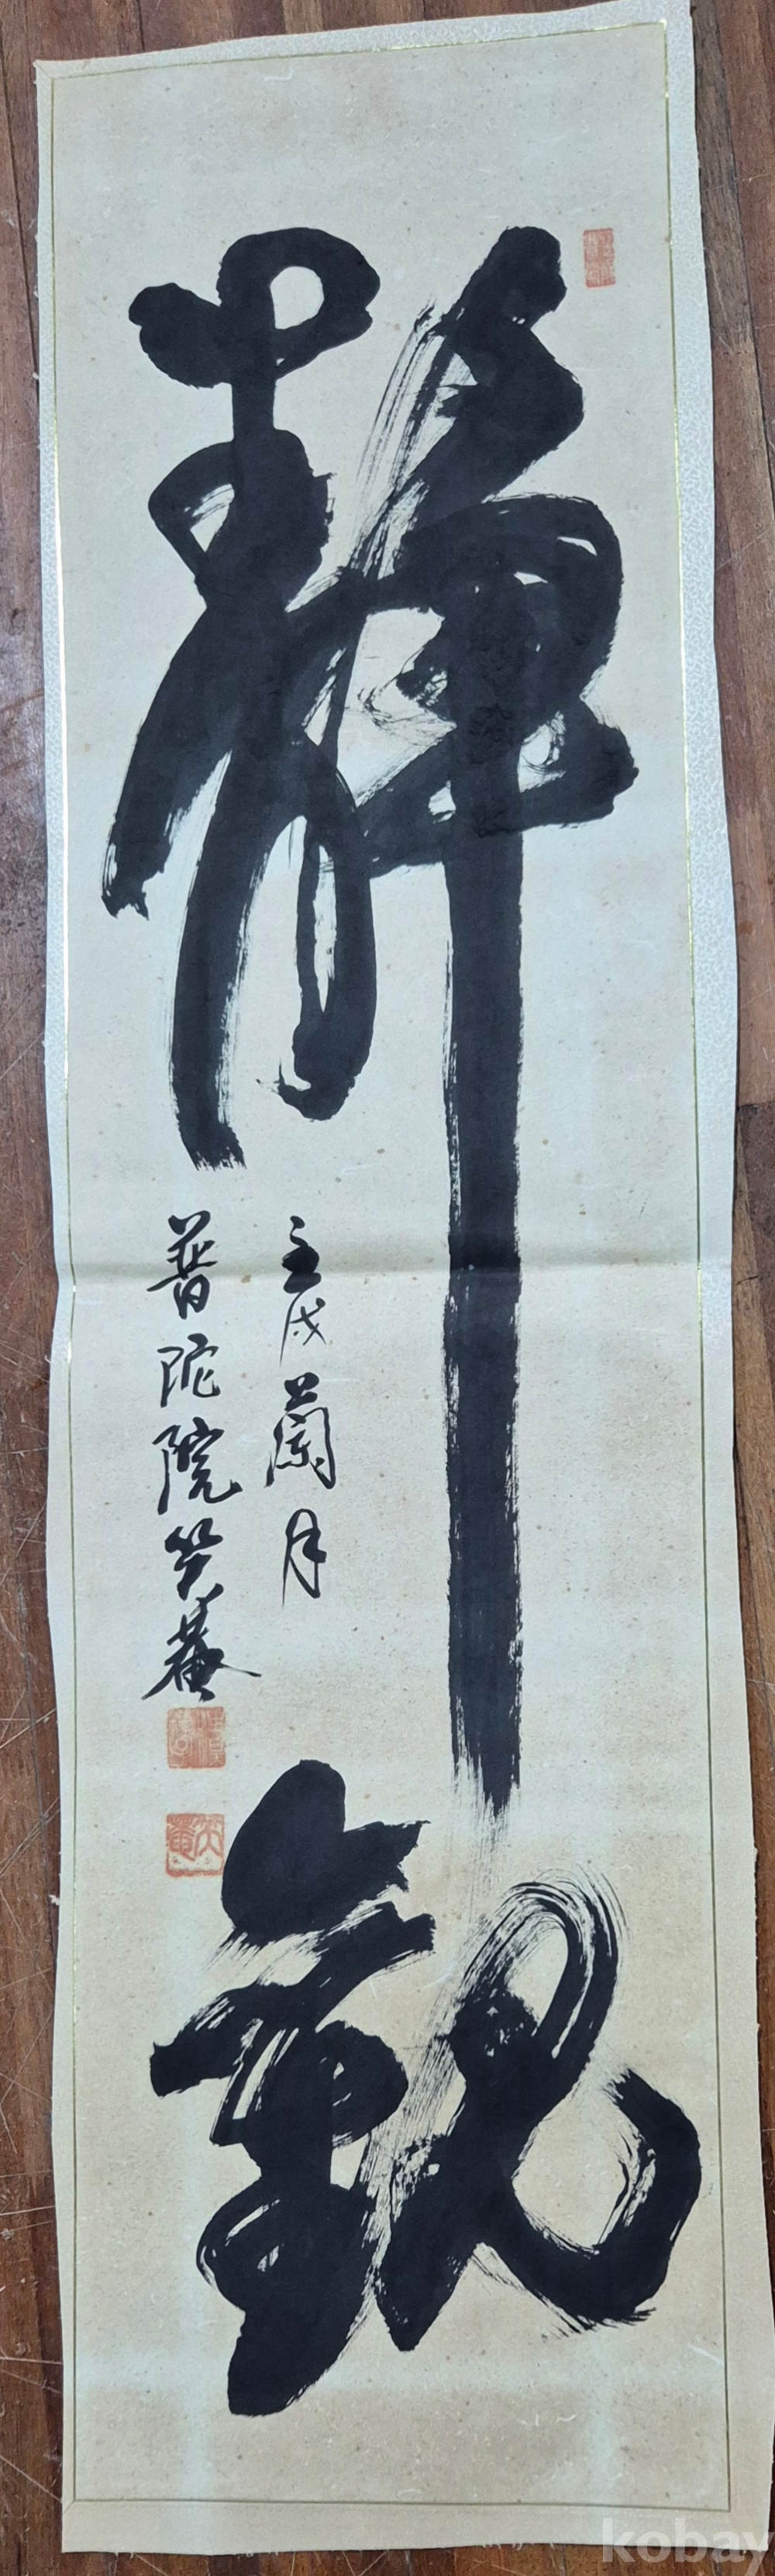 靜觀
壬戌蘭月
普陀院笑菴
kobay